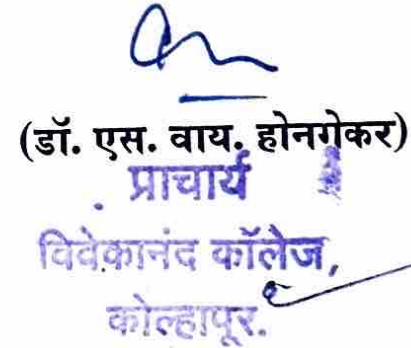 (डॉ. एस. वाय. होनगेकर)
प्राचार्य
विवेकानंद कॉलेज,
कोल्हापूर.